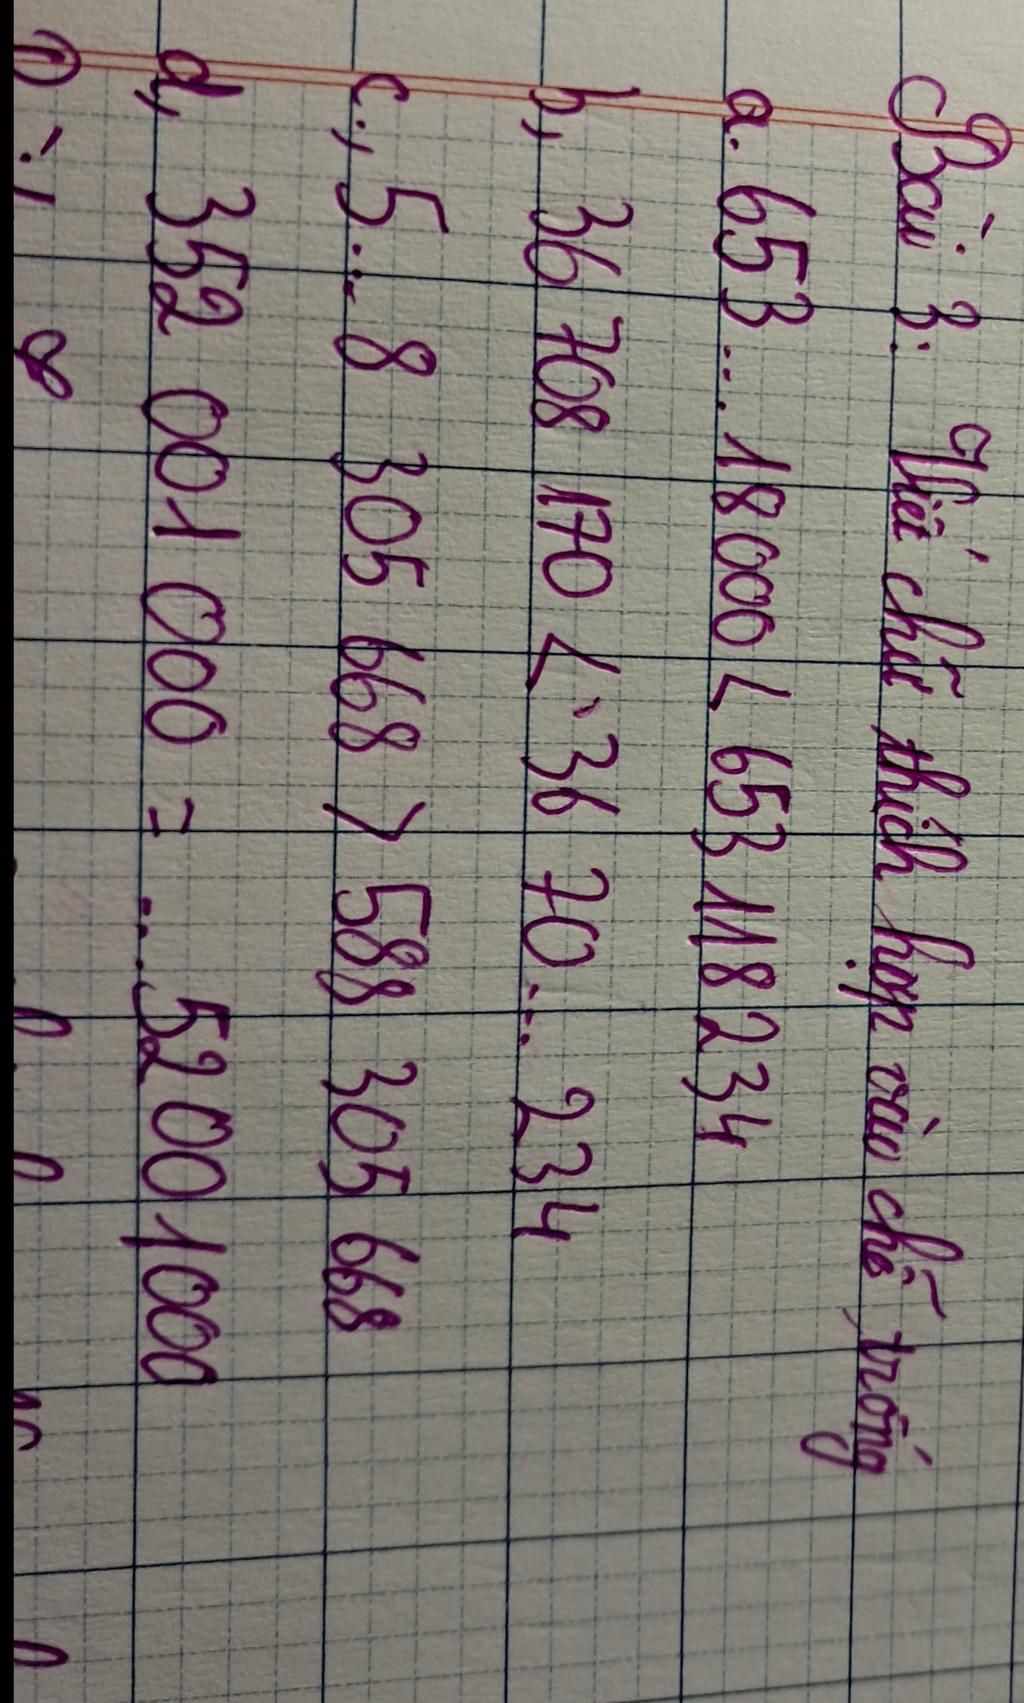 Bài 3: Viết chữ thích hợp vào chỗ trống
a. 653...18 000 < 653 118 234
b, 36 708 170 < 36 70... 234
c, 5...8 305 668 > 588 305 668
d, 352 001 000 = ...52 001 000